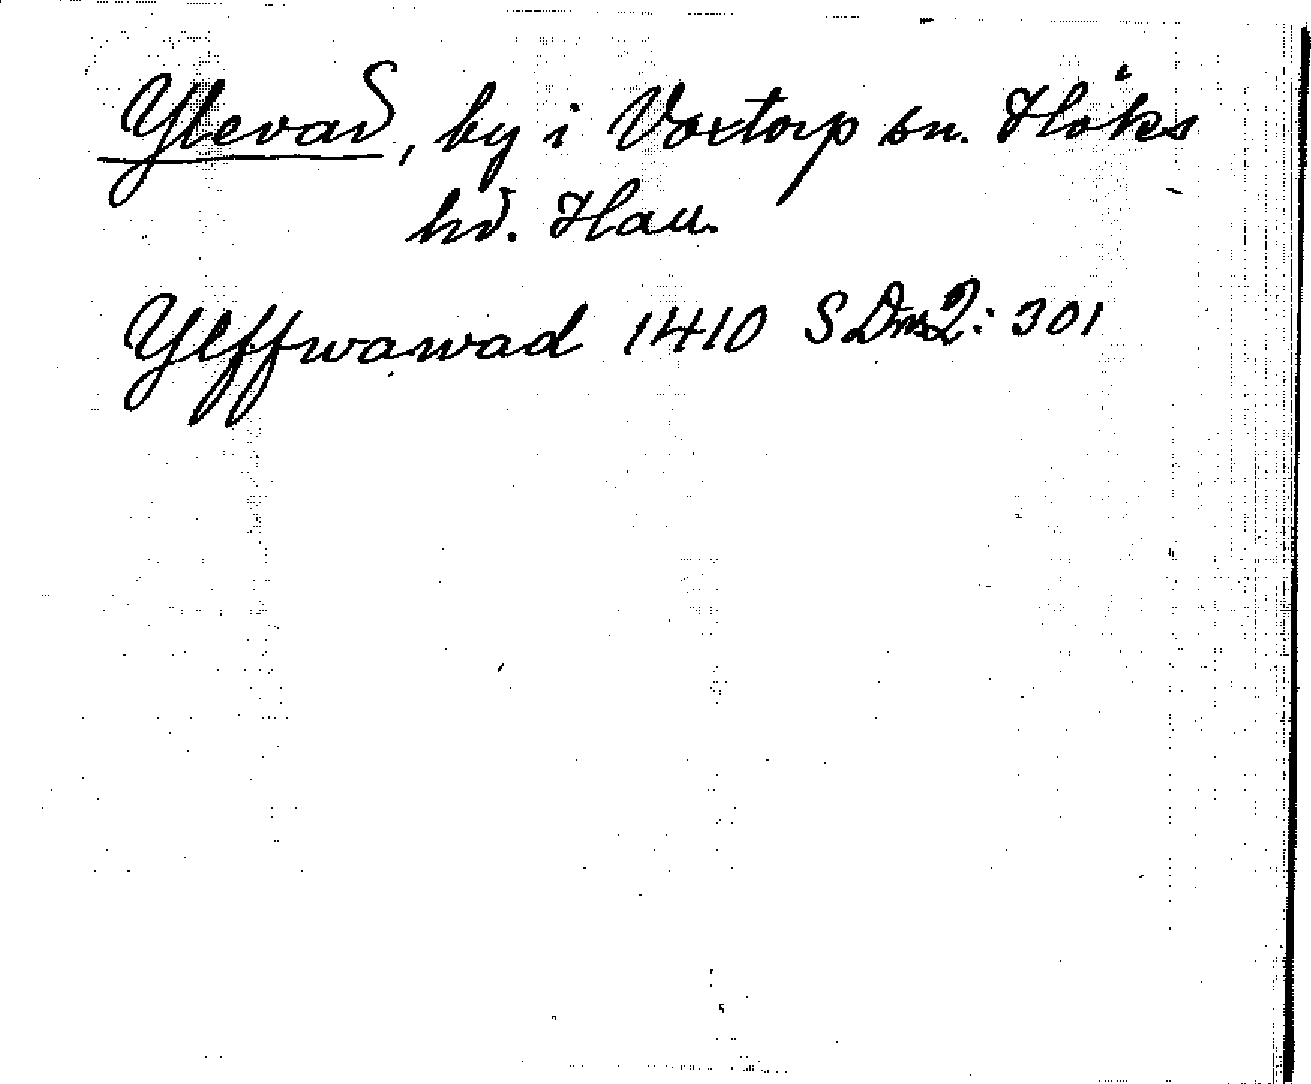 Ylevad, by i Voxtorp sn. Höks
hd. Hall.
Ylffwawad 1410 SDns2: 301